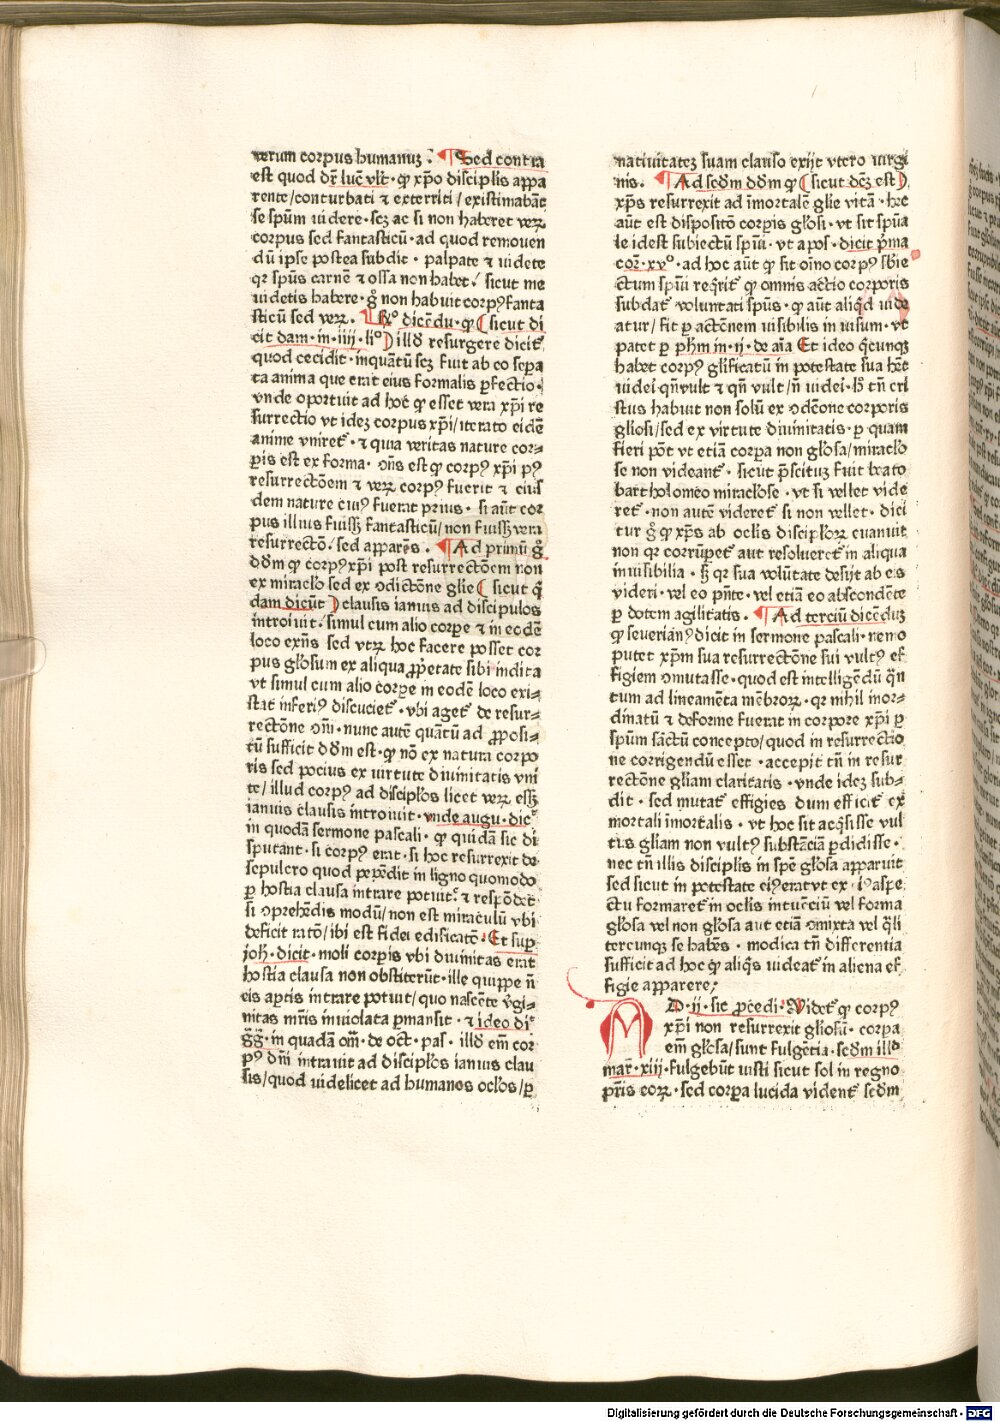 verum corpus humanuꝫ . ¶ Sed contra
est quod dr̄ luc̄ vlt̄ · ꝙ xp̄o disciplis appa
rente/conturbati ⁊ exterriti/existimabāt
se spūm videre · scꝫ ac si non haberet verꝝ
corpus sed fantasticū · ad quod remouen
dū ipse postea subdit · palpate ⁊ videte
qꝛ spūs carnē ⁊ ossa non habet/ sicut me
videtis habere · gͦ non habuit corpꝰ fanta
sticū sed verꝝ. ¶ Rͦ dicēdū · ꝙ (sicut di
cit dam · in · iiij · liͦ) illd̄ resurgere dicit̄
quod cecidit · inquātū scꝫ fuit ab eo sepa
ta anima que erat eius formalis ꝑfectio ·
vnde oportuit ad hoc̄ ꝙ esset vera xp̄i re
surrectio vt ideꝫ corpus xp̄i/iterato eidē
anime vniret̄ · ⁊ quia veritas nature cor⸗
ꝑis est ex forma · ↄn̄s est ꝙ corpꝰ xp̄i pꝰ
resurrectōem ⁊ verꝝ corpꝰ fuerit ⁊ eius
dem nature cuiꝰ fuerat prius · si aūt cor
pus illius fuissꝫ fantasticū/non fuissꝫ vera
resurrectō · sed apparēs . ¶ Ad primū gͦ
dd̄m ꝙ corpꝰ xp̄i post resurrectōem non
ex miraclo sed ex ↄdictōne glie (sicut q̄
dam dicūt) clausis ianuis ad discipulos
introiuit · simul cum alio corpe ⁊ in eodē
loco exn̄s sed vtꝝ hoc facere posset cor
pus glosum ex aliqua ꝓpetate sibi indita
vt simul cum alio corpe in eodē loco exi⸗
stat inferiꝰ discuciet̄ · vbi aget̄ de resur⸗
rectōne oīm · nunc autē quātū ad ꝓposi⸗
tū sufficit dd̄m est · ꝙ nō ex natura corpo
ris sed pocius ex virtute diuinitatis vni
te/illud corpꝰ ad disciplos licet verꝝ essꝫ
ianuis clausis introiuit · vnde augu · dicͭ
in quodā sermone pascali · ꝙ quidā sic di
sputant · si corpꝰ erat · si hoc resurrexit de
sepulcro quod pepēdit in ligno quomodo
ꝑ hostia clausa intrare potuitͭ ⁊ respōdet ·
si ↄprehēdis modū/non est miraculū vbi
deficit ratō/ibi est fidei edificatō · Et suꝑ
joh̄ · dicit · moli corꝑis vbi diuinitas erat
hostia clausa non obstiterūt · ille quippe n̄
eis aꝑtis intrare potuit/quo nascēte v̄gi⸗
nitas mr̄is inuiolata ꝑmansit · ⁊ ideo diͭ
gḡ · in quadā om̄ · de oct̄ · pas · illd̄ em̄ cor
pꝰ dn̄i intrauit ad disciplos ianuis clau
sis/quod videlicet ad humanos oclos/ꝑ
natiuitateꝫ suam clauso exijt vtero virgi
nis . ¶ Ad secd̄m dd̄m ꝙ (sicut dcēꝫ est)
xp̄s resurrexit ad īmortalē glie vitā · hec
aūt est dispositō corꝑis glosi · vt sit spūa
le idest subiectū spūi · vt apos · dicit p̄ma
cor̄ · xvͦ · ad hoc aūt ꝙ sit oīno corpꝰ sbie
ctum spūi reqͥrit̄ ꝙ omnis actio corporis
subdat̄ voluntati spūs · ꝙ aūt aliqd̄ vide
atur/fit ꝑ actōnem visibilis in visum · vt
patet ꝑ ph̄m in · ij · de aīa Et ideo qͥcunqꝫ
habet corpꝰ glificatū in potestate sua hēt
videri qn̄ vult ⁊ qn̄ vult/n̄ videri · lꝫ tn̄ cri
stus habuit non solū ex ↄdcōne corporis
gliosi/sed ex virtute diuinitatis · ꝑ quam
fieri pōt vt etiā corpa non glosa/miraclo
se non videant̄ · sicut p̄scituꝫ fuit beato
bartholomeo miraclose · vt si vellet vide
ret̄ · non autē videret̄ si non vellet · dici
tur gͦ ꝙ xp̄s ab oclis disciplorꝝ euanuit
non qꝛ corrūpet̄ aut resolueret̄ in aliqua
inuisibilia · sꝫ qꝛ sua volūtate desijt ab eis
videri · vel eo pn̄te · vel etiā eo abscondēte
ꝑ dotem agilitatis . ¶ Ad terciū dicēduꝫ
ꝙ seuerianꝰ dicit in sermone pascali · nemo
putet xp̄m sua resurrectōne sui vultꝰ ef
figiem ↄmutasse · quod est intelligēdū q̄n
tum ad lineamēta mēbroꝝ · qꝛ nihil inor⸗
dinatū ⁊ deforme fuerat in corpore xp̄i ꝑ
spūm sāctū concepto/quod in resurrectio
ne corrigendū esset · accepit tn̄ in resur
rectōne gliam claritatis · vnde ideꝫ sub⸗
dit · sed mutat̄ effigies dum efficit̄ ex
mortali īmortalis · vt hoc sit acqͥsisse vul
tus gliam non vultꝰ substāciā ꝑdidisse ·
nec tn̄ illis disciplis in spē glosa apparuit
sed sicut in potestate eiꝰ erat vt ex · iꝰ aspe
ctu formaret̄ in oclis intuēciū vel forma
glosa vel non glosa aut etiā ↄmixta vel qͣli
tercunqꝫ se habēs · modica tn̄ differentia
sufficit ad hoc ꝙ aliqͥs videat̄ in aliena ef
figie apparere/
AD · ij · sic ꝓcedi · Videt̄ ꝙ corpꝰ
xp̄i non resurrexit gliosū · corpa
em̄ glosa/sunt fulgētia · secd̄m illͩ
mat̄ · xiij · fulgebūt iusti sicut sol in regno
pr̄is eoꝝ · sed corpa lucida vident̄ secd̄m
Digitalisierung gefördert durch die Deutsche Forschungsgemeinschaft - DFG